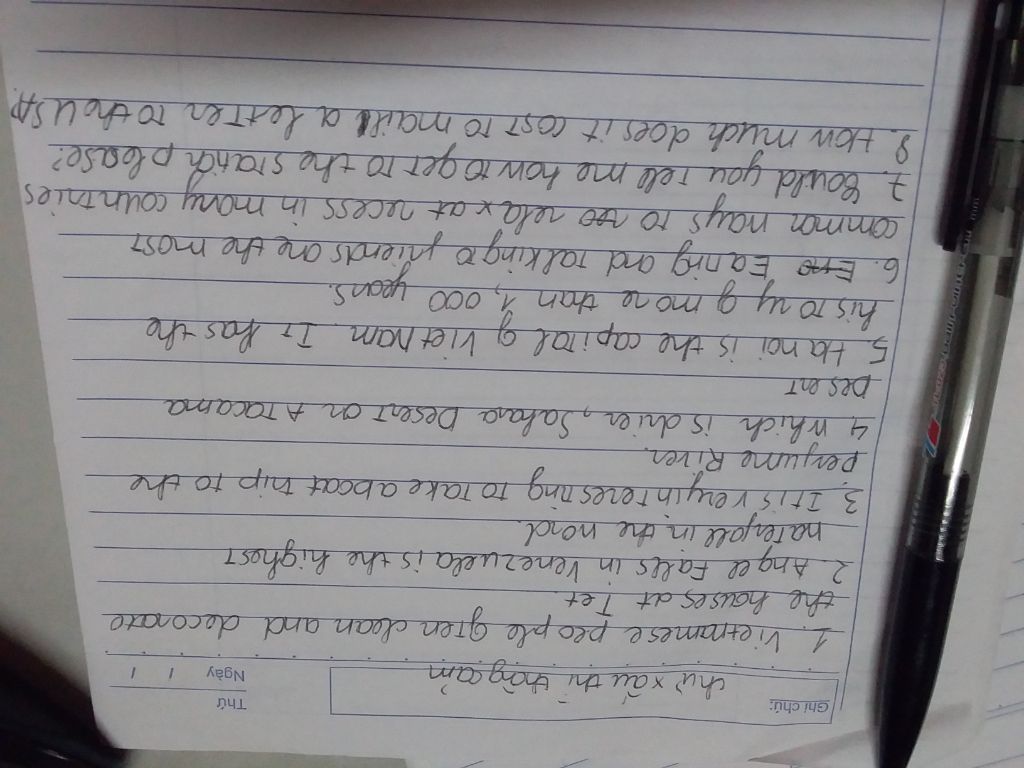 Ghi chú:
Thứ
Ngày / /
chữ xấu thì thông cảm
1. Vietnamese people often clean and decorate
the houses at Tet.
2. Angel Falls in Venezuela is the highest
in the word.
3. It is very interesting to take a boat trip to the
Perfume River.
4. Which is drier, Sahara Desert or Atacama
Desert
5. Hanoi is the capital of Vietnam. It has the
history of more than 1,000 years.
6. Eaning and talking to friends are the most
common ways to relax at recess in many countries
7. Could you tell me how to get to the please?
8. How much does it cost to mail a letter to the USA.